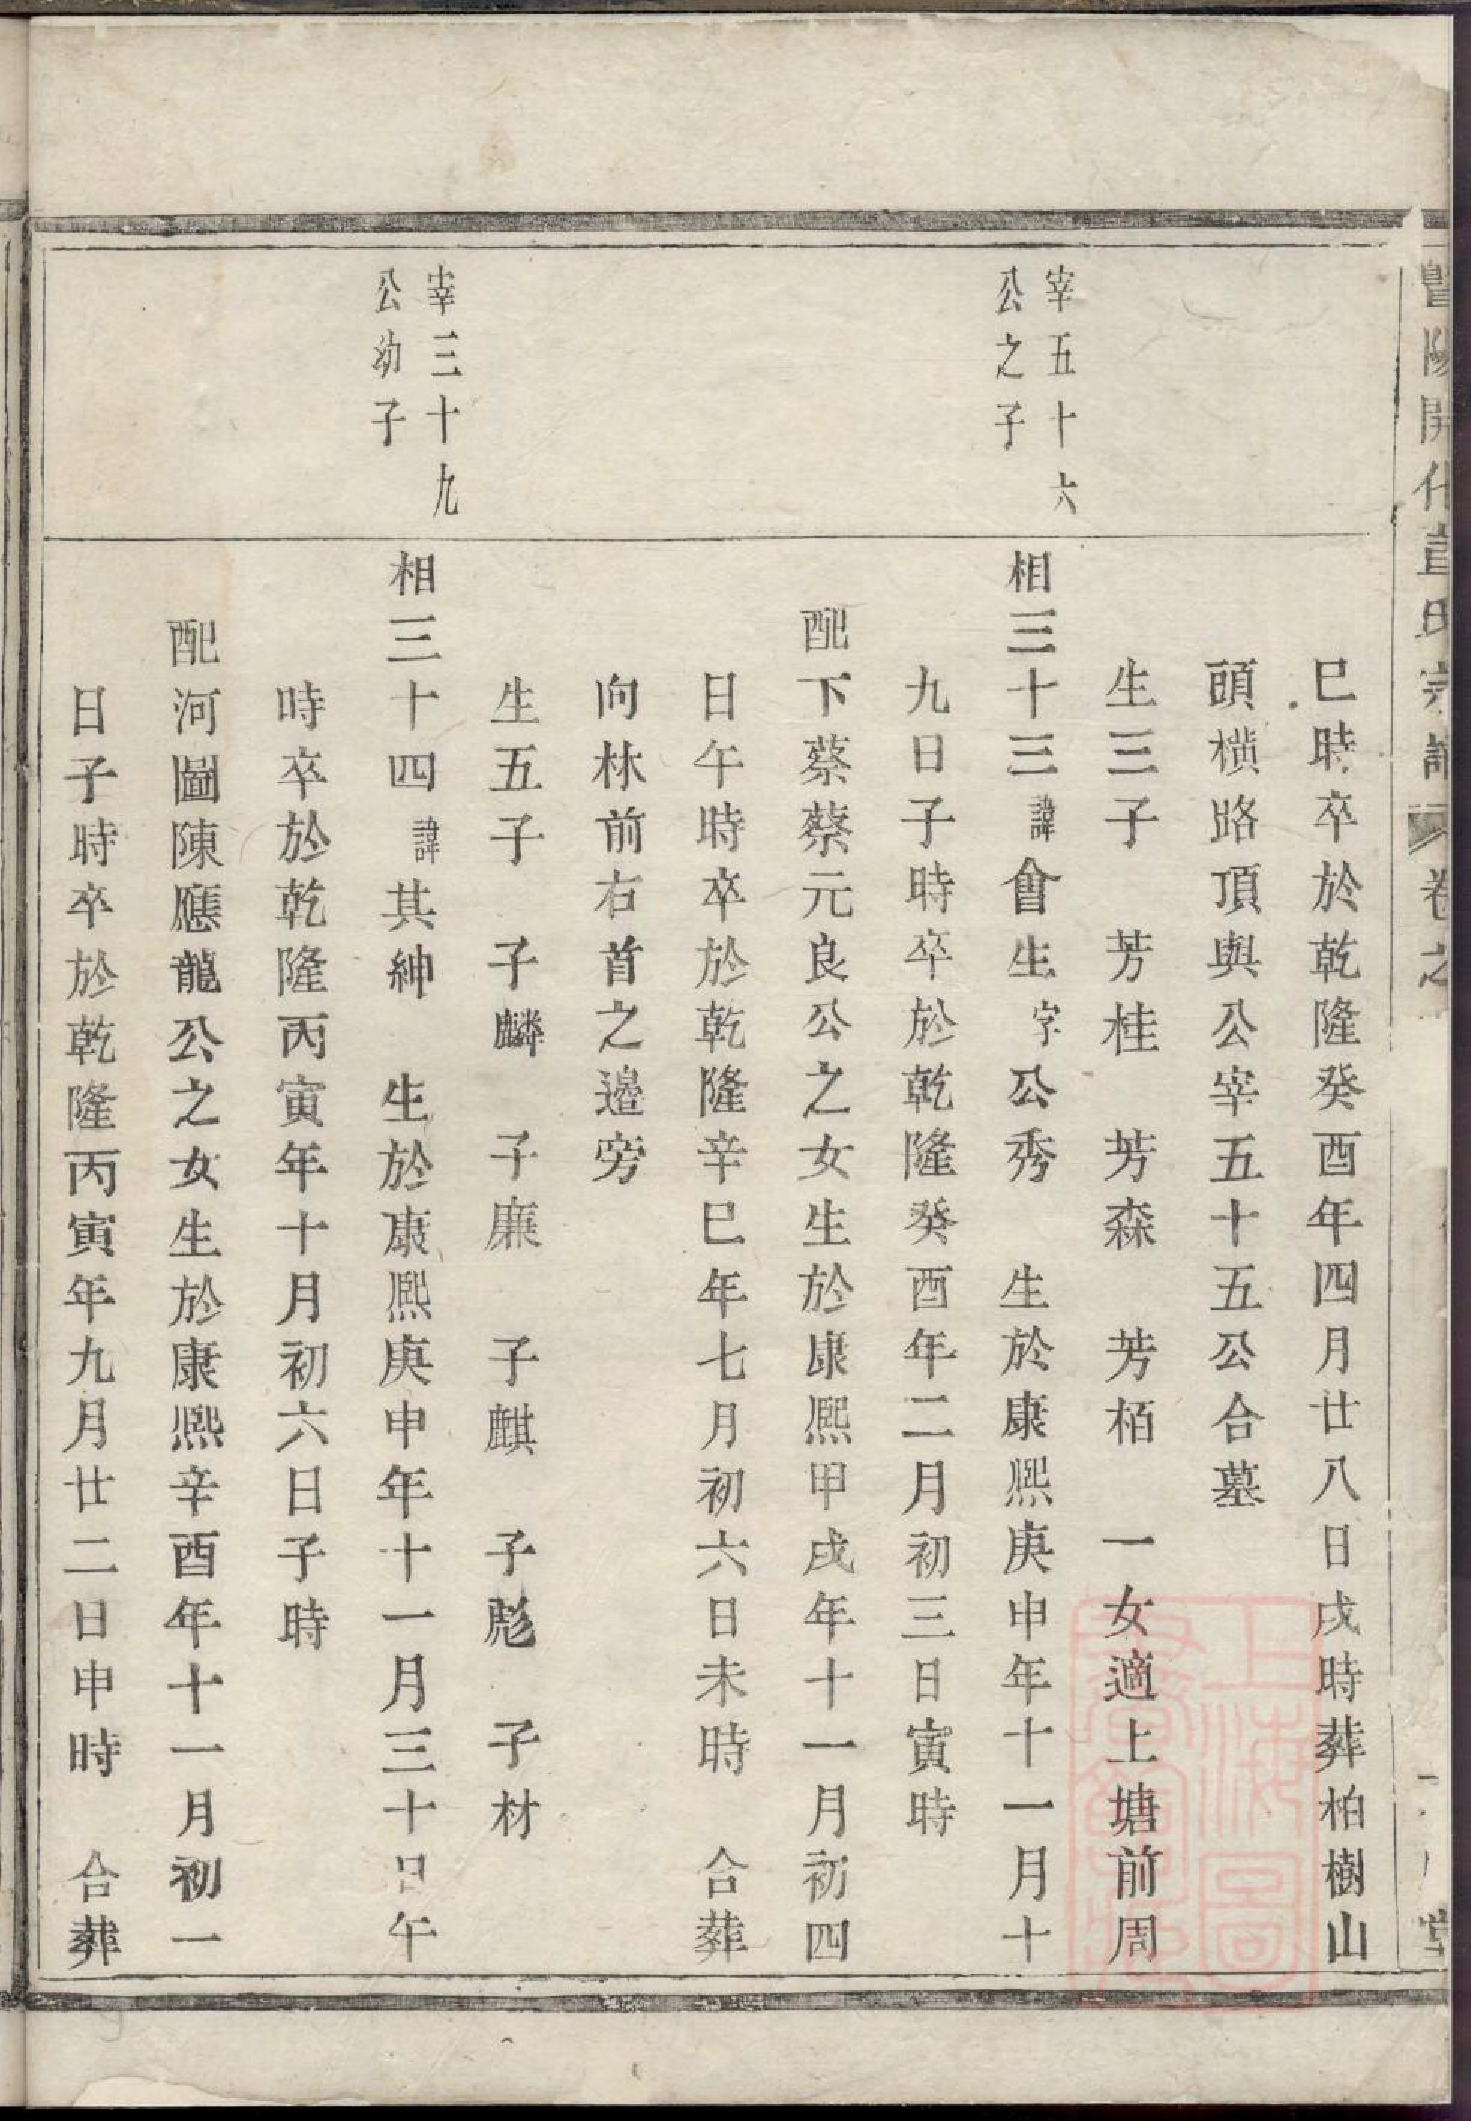 暨陽開化
氏宗譜
卷之
堂
巳時卒於乾隆癸酉年四月廿八日戌時葬柏樹山
頭橫路頂與公宰五十五公合墓
生三子 芳桂 芳森 芳栢 一女適上塘前周
宰五十六
公之子
相三十三諱會生字公秀 生於康熙庚申年十一月十
九日子時卒於乾隆癸酉年二月初三日寅時
配下蔡蔡元良公之女生於康熙甲戌年十一月初四
日午時卒於乾隆辛巳年七月初六日未時 合葬
向林前右首之邉旁
生五子 子麟 子廉 子麒 子彪 子材
宰三十九
公幼子
相三十四諱其紳 生於康熙庚申年十一月三十日午
時卒於乾隆丙寅年十月初六日子時
配河圖陳應龍公之女生於康熙辛酉年十一月初一
日子時卒於乾隆丙寅年九月廿二日申時 合葬
上海圖
書館藏